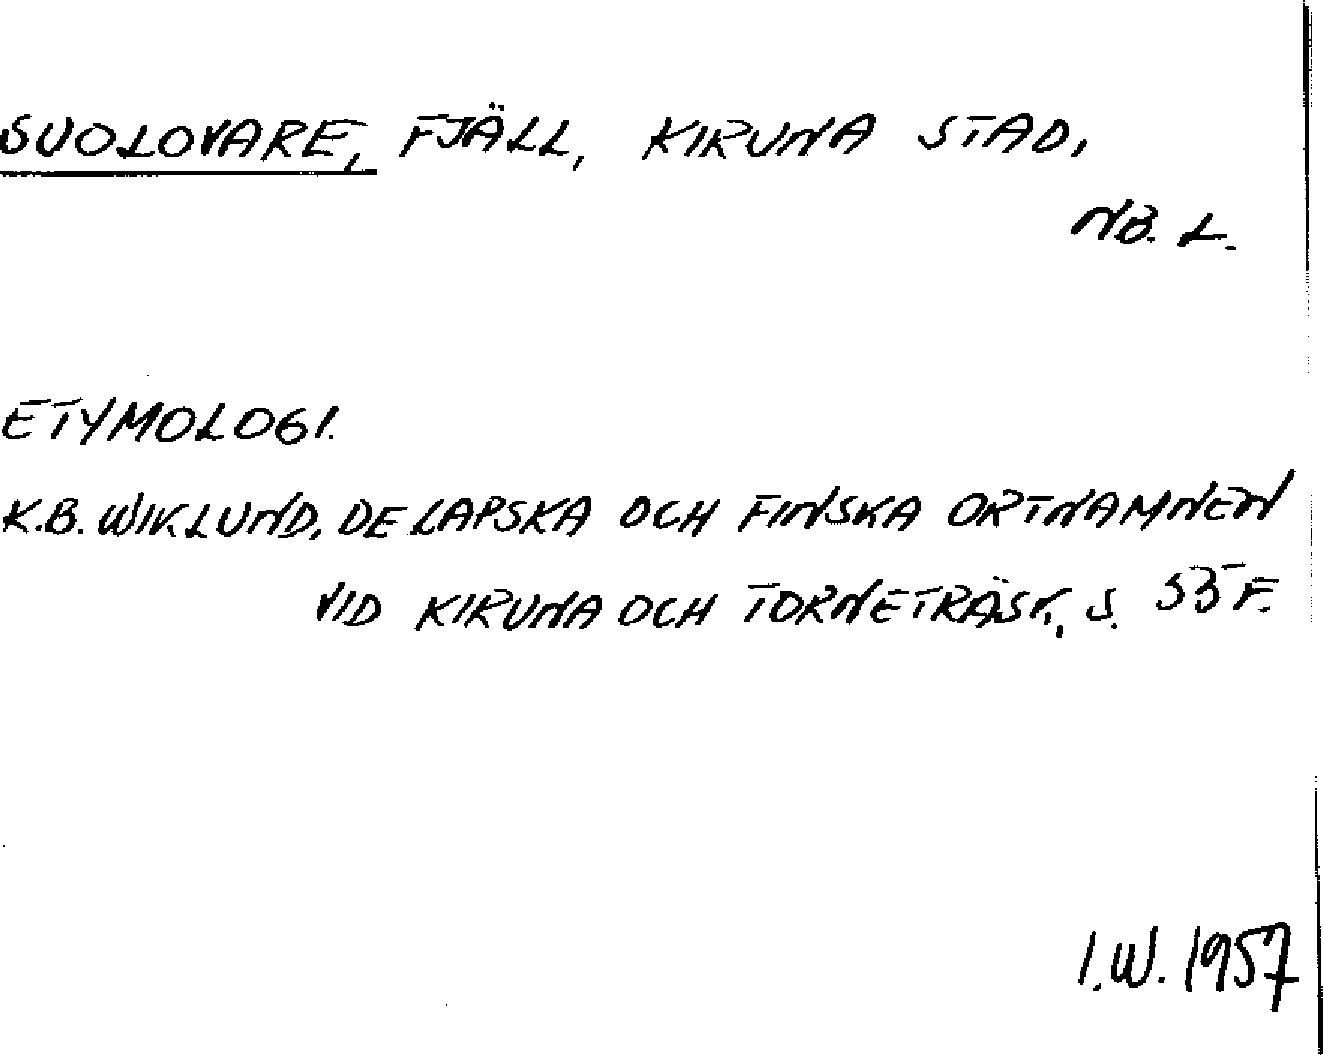 SUOLOVARE, FJÄLL, KIRUNA STAD,
NB. L.
ETYMOLOGI.
K.B. WIKLUND, DE LAPSKA OCH FINSKA ORTNAMNEN
VID KIRUNA OCH TORNETRÄSK, S. 33 F.
I.W. 1957